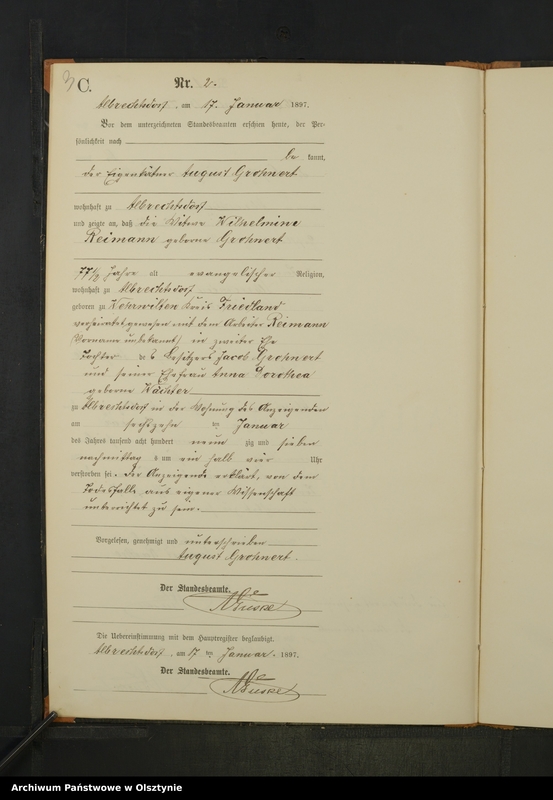 3 C.
Nr. 2.
Albrechtsdorf, am 17. Januar 1897.
Vor dem unterzeichneten Standesbeamten erschien heute, der Per-
sönlichkeit nach
be kannt,
der Eigenkätner August Grohnert
wohnhaft zu Albrechtsdorf
und zeigte an, daß die Witwe Wilhelmine
Reimann geborne Grohnert
77 1/2 Jahre alt evangelischer Religion,
wohnhaft zu Albrechtsdorf
geboren zu Kreis Friedland
verheiratet gewesen mit dem Arbeiter Reimann
(Vorname unbekannt) in zweiter Ehe
Tochter des Besitzers Jacob Grohnert
und seiner Ehefrau Anna Dorothea
geborne Wächter
zu Albrechtsdorf in der Wohnung des Anzeigenden
am sechszehn ten Januar
des Jahres tausend acht hundert neun zig und sieben
nachmittag s um ein halb vier Uhr
verstorben sei. Der Anzeigende erklärt, von dem
Todesfalle aus eigener Wissenschaft
unterrichtet zu sein.
Vorgelesen, genehmigt und unterschrieben
August Grohnert.
Der Standesbeamte.
Die Uebereinstimmung mit dem Hauptregister beglaubigt.
Albrechtsdorf, am 17 ten Januar. 1897.
Der Standesbeamte.
Archiwum Państwowe w Olsztynie